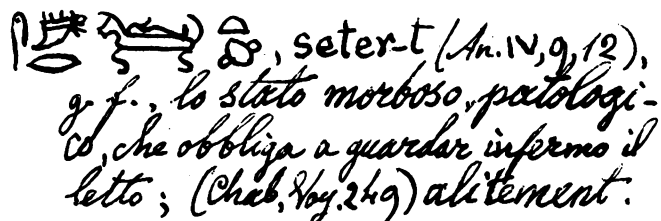 , seter-t (An. IV, 9, 12),
g. f., lo stato morboso, patologi-
co, che obbliga a guardar infermo il
letto; (Chab, Voy. 249) alitement.